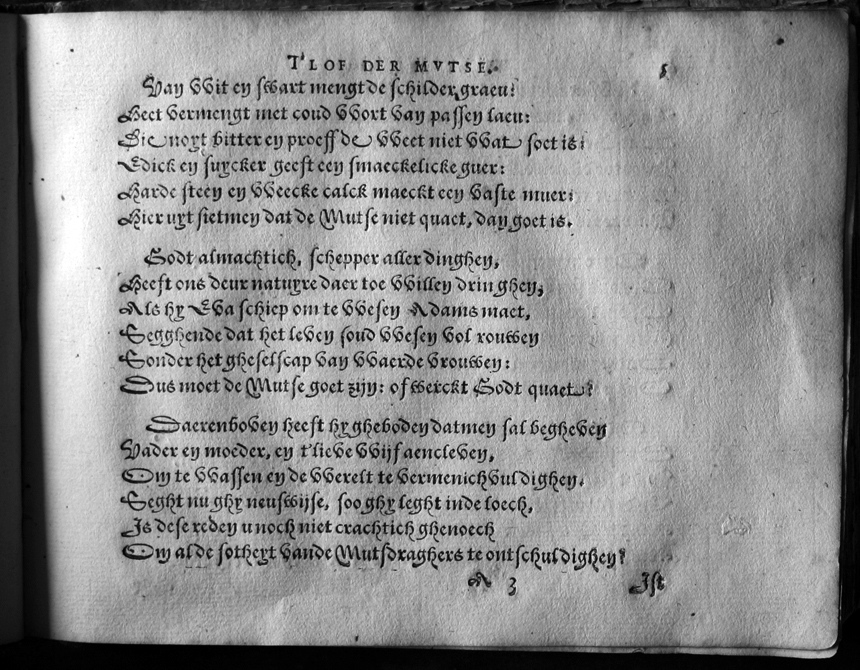 T'LOF DER MVTSE.
5
Van VVit en swart mengt de schilder graeu:
Heet vermengt met coud VVort van passen laeu:
Die noyt bitter en proeff de VVeet niet VVat soet is:
Edick en suycker geeft een smaeckelicke guer:
Harde steen en VVeecke calck maeckt een vaste muer:
Hier uyt sietmen dat de Mutse niet quaet, dan goet is.
Godt almachtich, schepper aller dinghen,
Heeft ons deur natuyre daer toe VVillen dringhen,
Als hy Eva schiep om te VVesen Adams maet,
Segghende dat het leven soud VVesen vol rouwen
Sonder het gheselscap van VVaerde vrouwen:
Dus moet de Mutse goet zijn: of werckt Godt quaet?
Daerenboven heeft hy gheboden datmen sal begheven
Vader en moeder, en t'lieve VVijf aencleven,
Om te VVassen en de VVerelt te vermenichvuldighen.
Seght nu ghy neuswijse, soo ghy leght inde loech,
Is dese reden u noch niet crachtich ghenoech
Om al de sotheyt vande Mutsdraghers te ontschuldighen?
A 3 Ist